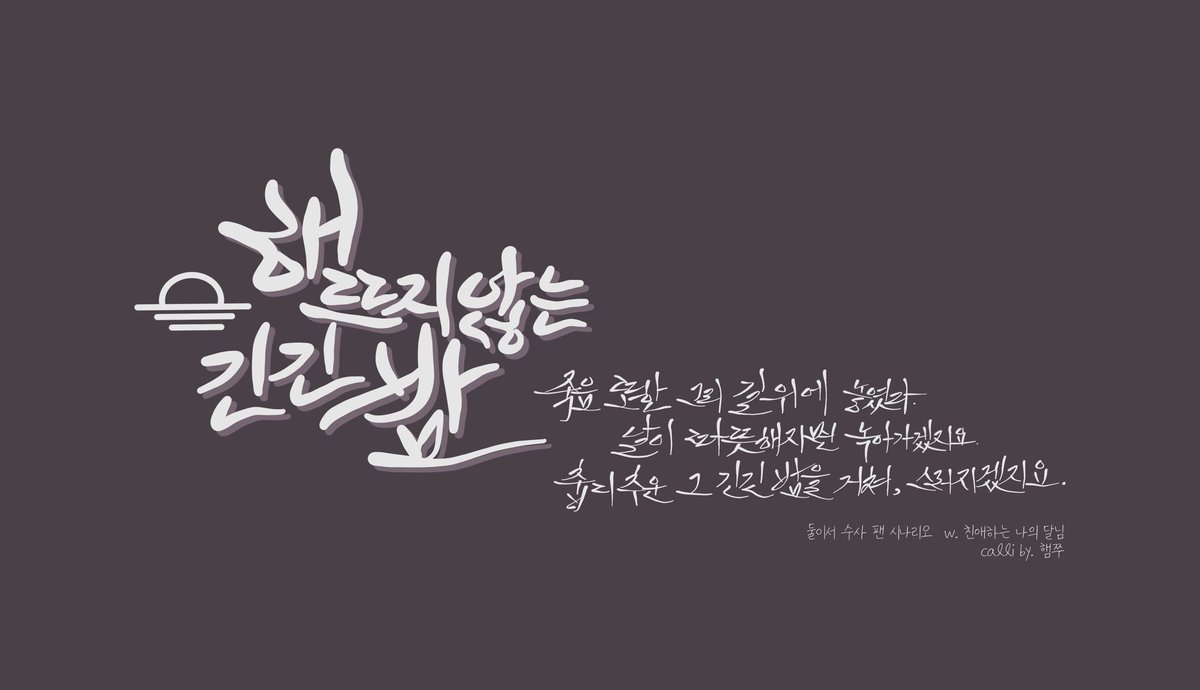 해 뜨지 않는
긴긴 밤
죽음 또한 그의 길 위에 놓였다.
날이 따뜻해지면 녹아가겠지요
춥디 추운 그 긴긴 밤을 거쳐, 스러지겠지요.
둘이서 수사 팬 시나리오 w. 친애하는 나의 달님
calli by. 햄쭈